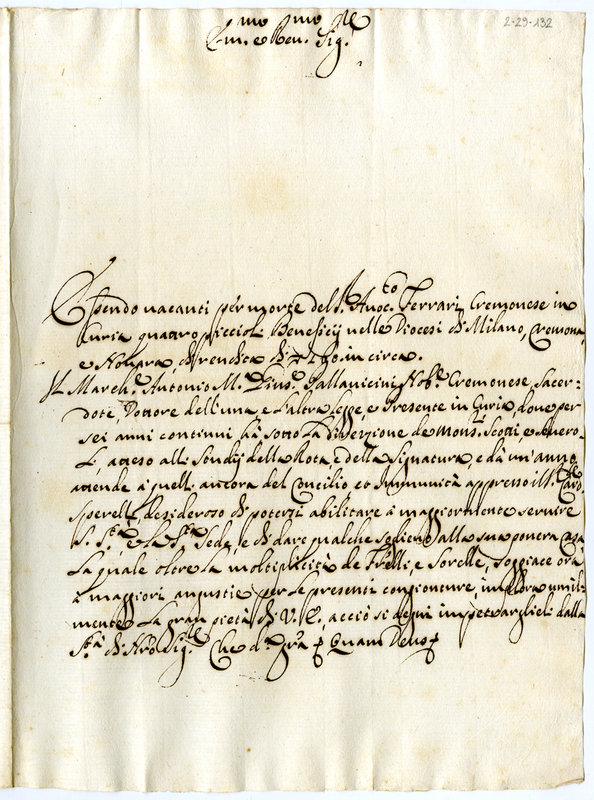 2-29-132
Em.mo e Reu.mo Sig.re
Essendo uacanti per morte dell' Auoc.to Ferrari Cremonese in
Curia quattro piccioli Beneficij nelle Diocesi di Milano, Cremona,
e Nouara, di rendita di in circa.
Il March.e Antonio M.a Pallauicini Nob.e Cremonese, Sacer-
dote, Dottore dell'una, e l'altra Legge, e Presente in Curia, doue per
sei anni continui hà sotto la direzzione de Mons.i Scotti e
atteso alli Studij della Rota, e della Signatura, e dà un'anno
attende à quelli ancora del Concilio ed Immunità appresso ill' Card.le
Sperelli, desideroso di potersi abilitare à maggiormente seruire
S. S.tà, e la S.ta Sede, e di dare qualche solieuo alla sua pouera Casa
la quale oltre la moltiplicità de Fr̃elli, e Sorelle, soggiace ora
à maggiori angustie per le presenti congionture, implora umil-
mente la gran pietà di V. E., acciò si degni impetrarglieli dalla
S.tà di Nr̃o Sig.re Che d.a gr̃a Quam Deus